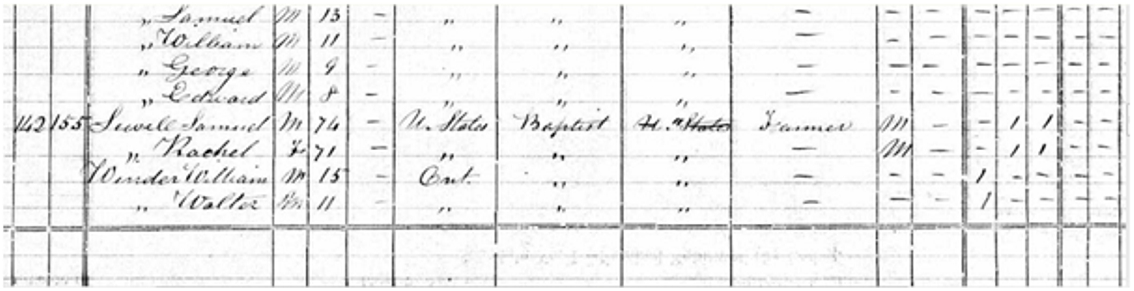 „ Samuel M 13 - „ „ „ - - - - - - - -
„ William M 11 - „ „ „ - - - - - - - -
„ George M 9 - „ „ „ - - - - - - - -
„ Edward M 8 - „ „ „ - - - - - - - -
142 155 Sewell Samuel M 74 - U. States Baptist U. States Farmer M - - 1 1 - -
„ Rachel F 71 - „ „ „ - M - - 1 1 - -
Winder William M 15 - Ont. „ „ - - - 1 - - - -
„ Walter M 11 - „ „ „ - - - 1 - - - -